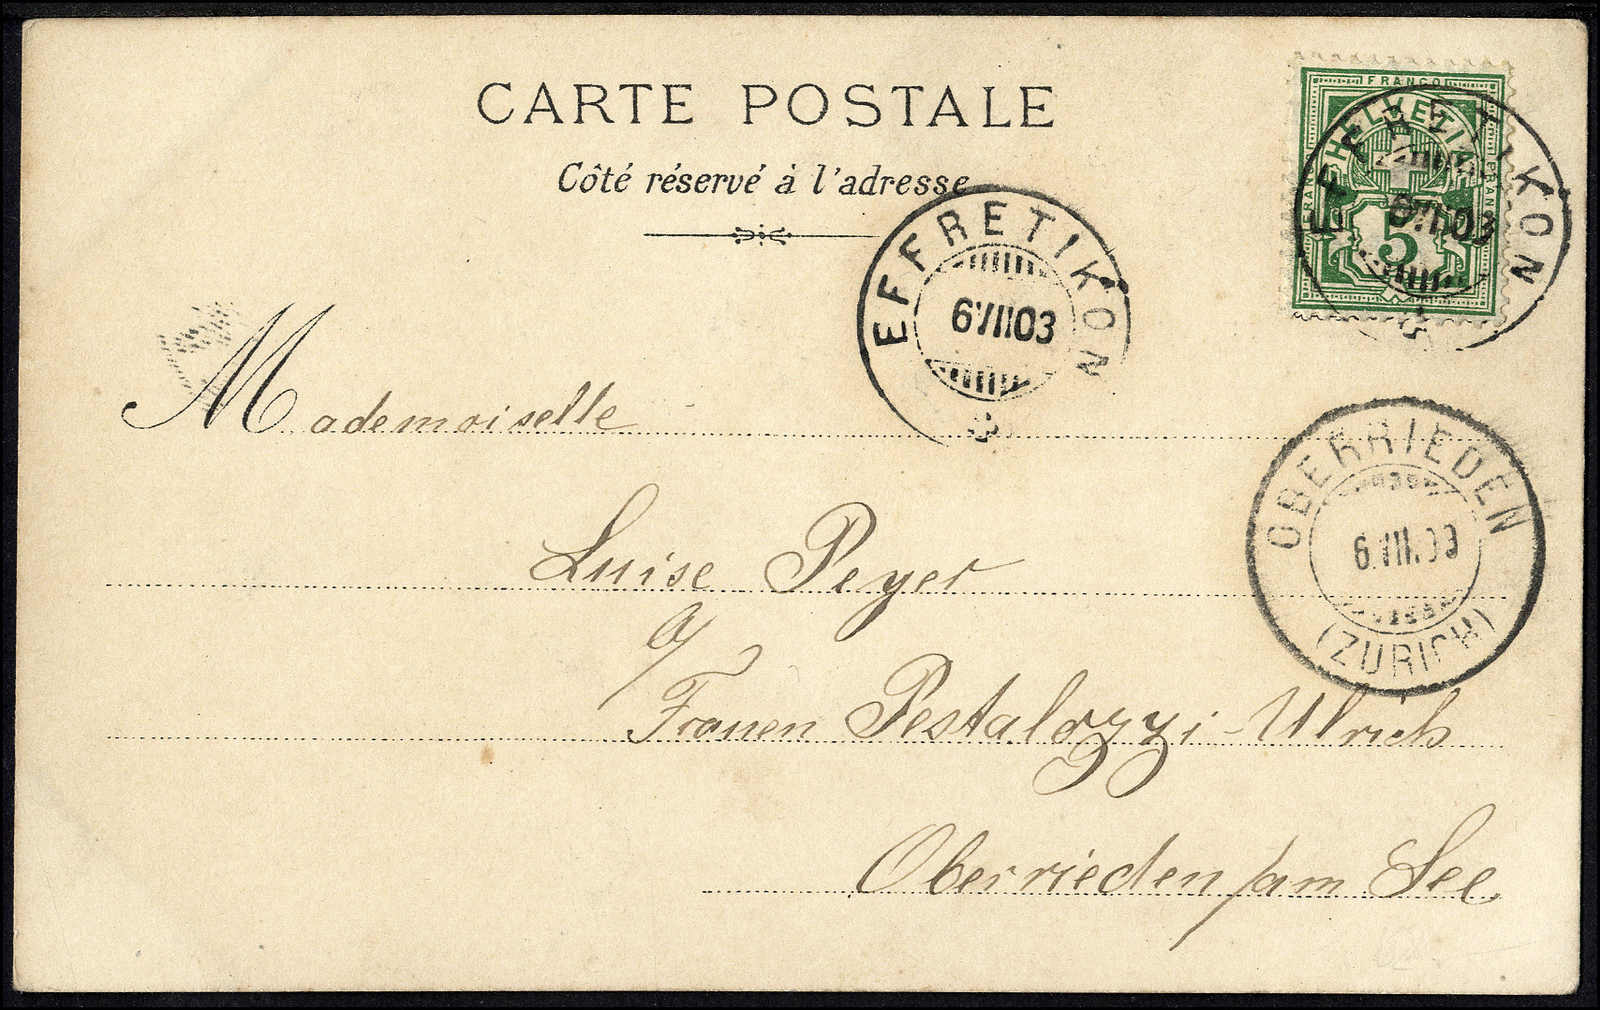 CARTE POSTALE
Côté réservé à l'adresse
FRANCO
HELVETIA
FRANCO
5
EFFRETIKON
VII 03
EFFRETIKON
6 VII 03
Mademoiselle
OBERRIEDEN
(ZÜRICH)
Luise Peyer
a/
Frauen Pestalozzi-Ulrich
Oberrieden /am See